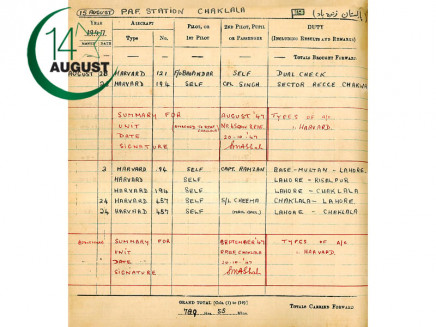 15 AUGUST P.A.F. STATION CHAKLALA
14 AUGUST
YEAR 1947 AIRCRAFT PILOT, OR 1ST PILOT 2ND PILOT, PUPIL OR PASSENGER DUTY (INCLUDING RESULTS AND REMARKS)
MONTH DATE Type No.
TOTALS BROUGHT FORWARD
AUGUST HARVARD 121 SELF DUAL CHECK
194 SELF CPL SINGH SECTOR RECCE
SUMMARY FOR AUGUST '47 TYPES OF A/C
UNIT HARVARD.
DATE 20-10-'47
SIGNATURE
3 HARVARD 94 SELF CAPT. RAMZAN BASE-MULTAN-LAHORE.
HARVARD SELF LAHORE - RISALPUR
HARVARD 194 SELF LAHORE - CHAKLALA
24 HARVARD 457 SELF S/L CHEEMA CHAKLALA - LAHORE.
24 HARVARD 457 SELF LAHORE - CHAKLALA
SUMMARY FOR SEPTEMBER '47 TYPES OF A/C
UNIT CHAKLALA HARVARD.
DATE
SIGNATURE
GRAND TOTAL [Cols. (1) to (10)]
789 Hrs. 55 Mins.
TOTALS CARRIED FORWARD